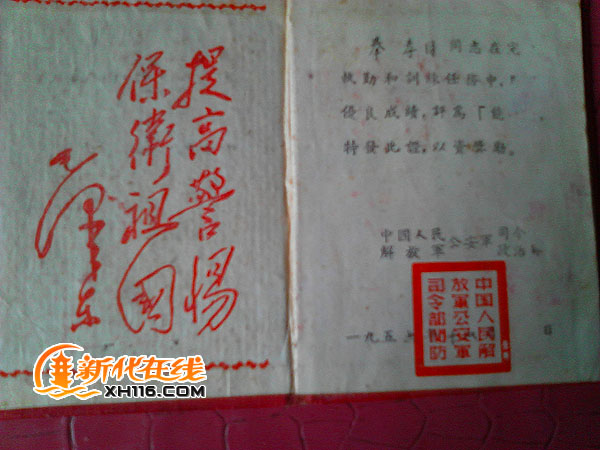 提高警惕
保衛祖國
毛澤東
李 同志在完
執勤和訓練任務中，
優良成績，評為「
特發此證，以資獎勵。
中國人民
解放軍
公安軍
司令
政治
一九五
中国人民解
放軍公安軍
司令部關防
新化在线
XH116.COM